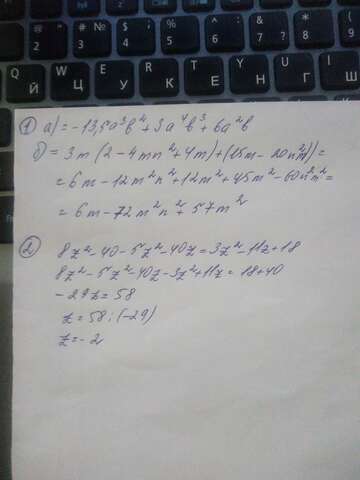 ! 1 @ 2 # № 3 $ ; 4 % 5 ^ : 6 & ? 7 * 8 ( 9
Q Й W Ц E У R К T Е Y Н U Г I Ш
1) а) = -13,5a³b⁴ + 3a⁴b³ + 6a²b
б) = 3m (2 - 4mn² + 4m) + (15m - 20n²m²)) =
= 6m - 12m²n² + 12m² + 45m² - 60n²m² =
= 6m - 72m²n² + 57m²
2) 8z² - 40 - 5z² - 40z = 3z² - 11z + 18
8z² - 5z² - 40z - 3z² + 11z = 18 + 40
- 29z = 58
z = 58 : (-29)
z = - 2